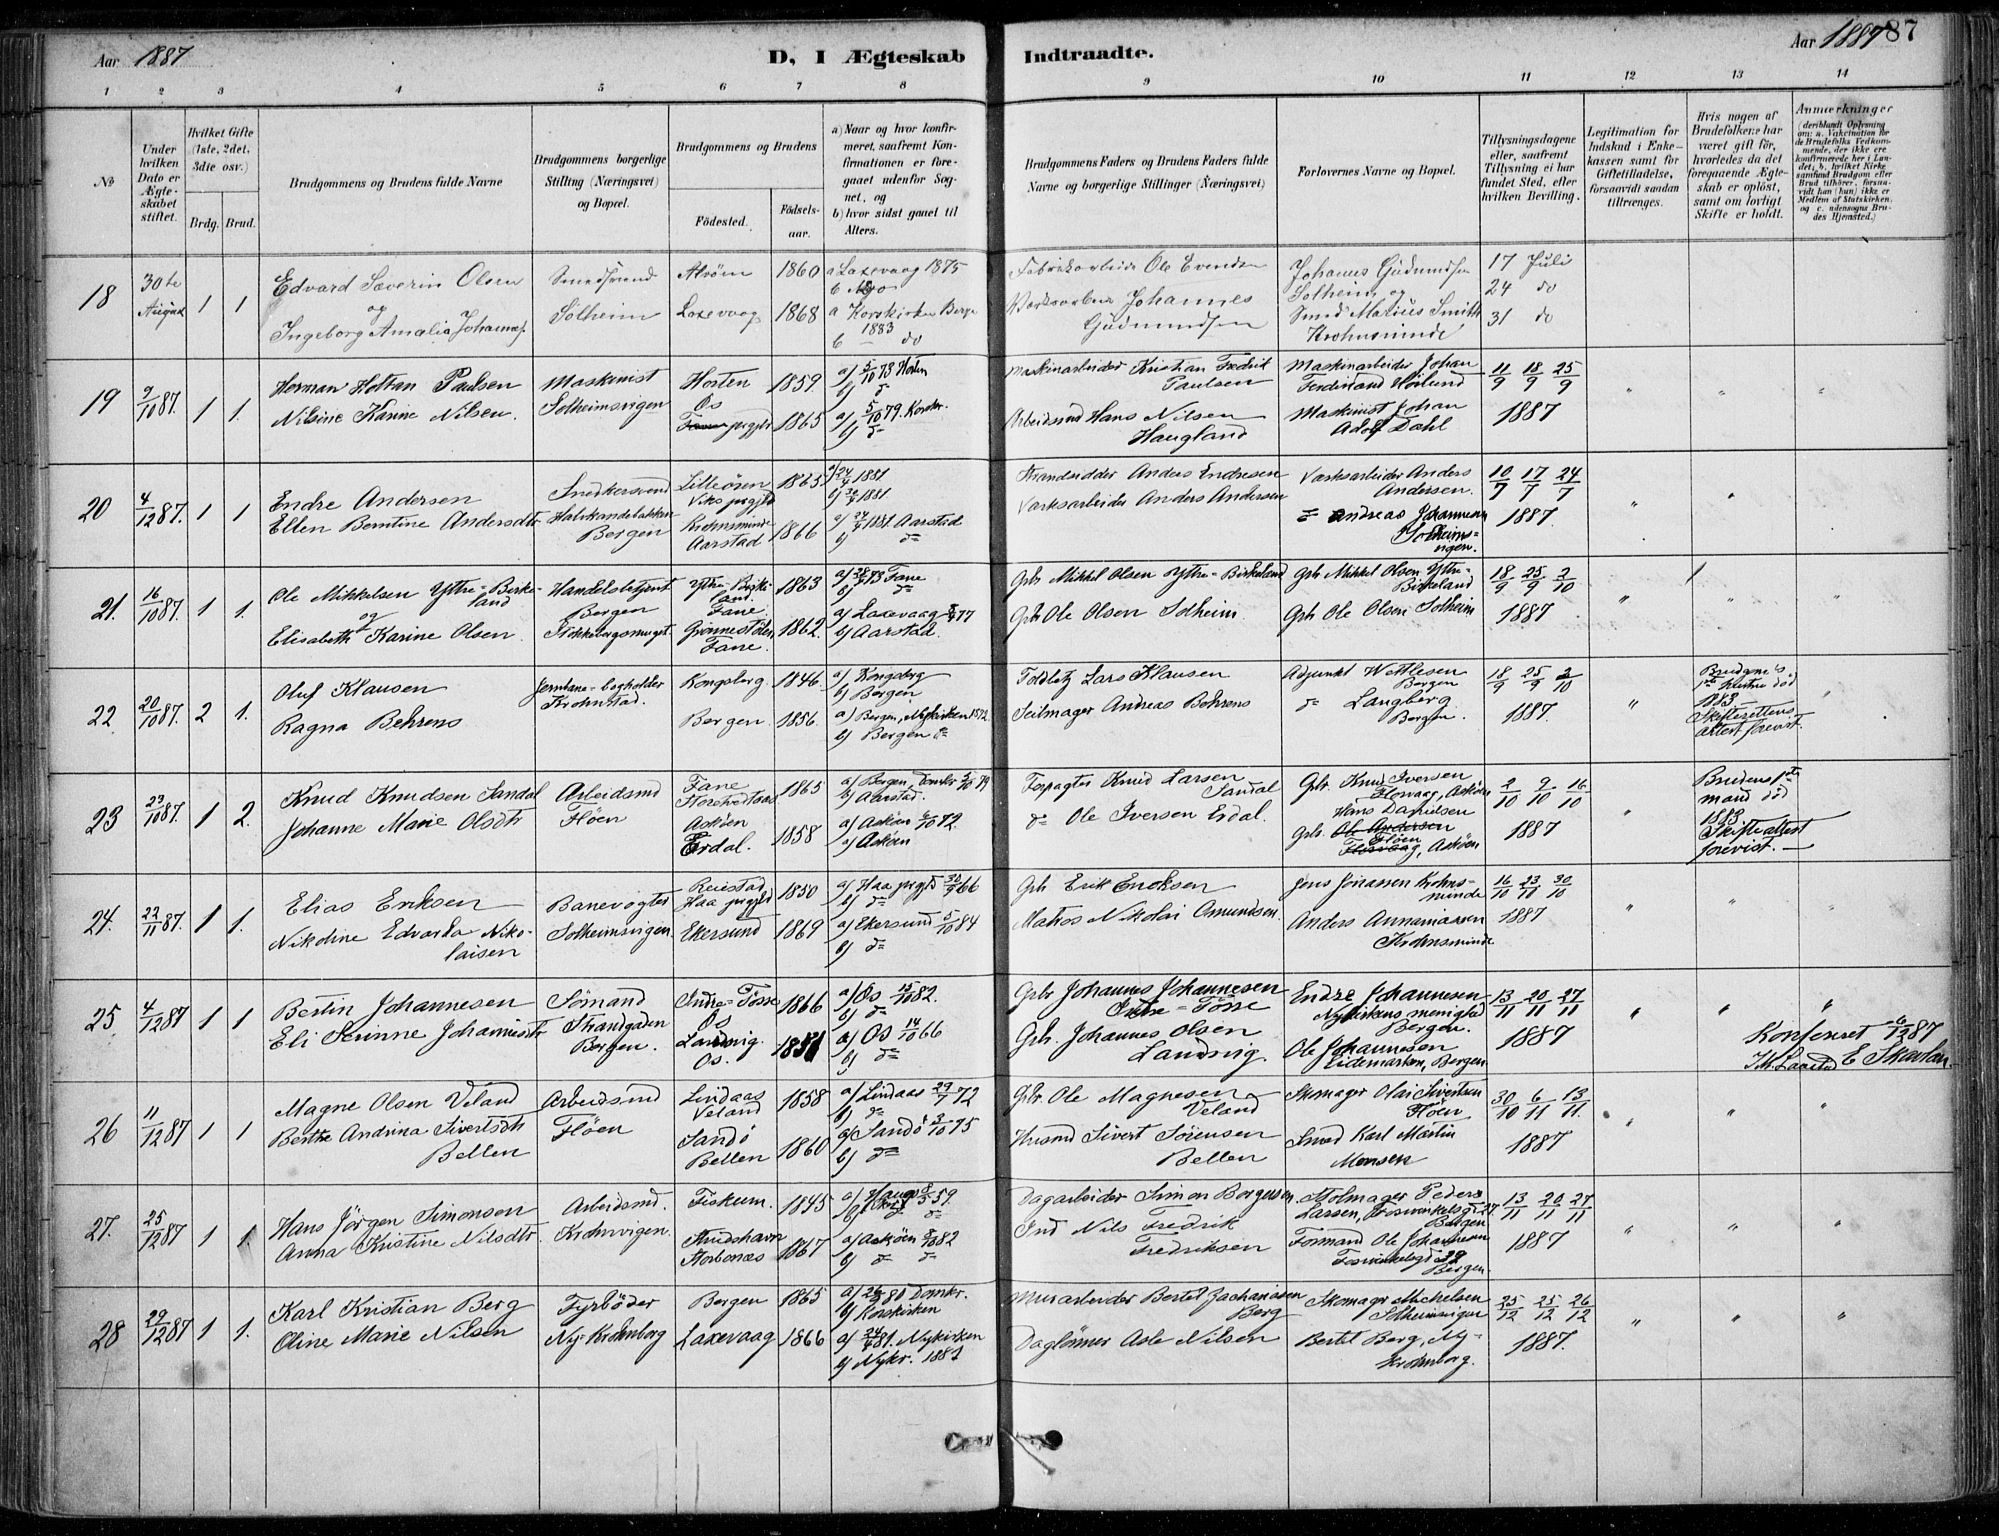 Aar 1887
D, I Ægteskab Indtraadte.
Aar 1887 87
1 2 3 4 5 6 7 8 9 10 11 12 13 14
№
Under hvilken Dato er Ægteskabet stiftet.
Hvilket Gifte (1ste, 2det, 3die osv.)
Brdg. Brud.
Brudgommens og Brudens fulde Navne
Brudgommens borgerlige Stilling (Næringsvei) og Bopæl.
Brudgommens og Brudens
Fødested.
Fødselsaar.
a) Naar og hvor konfirmeret, saafremt Konfirmationen er foregaaet udenfor Sognet, og
b) hvor sidst gaaet til Alters.
Brudgommens Faders og Brudens Faders fulde Navne og borgerlige Stillinger (Næringsvei)
Forlovernes Navne og Bopæl.
Tillysningsdagene eller, saafremt Tillysning ei har fundet Sted, efter hvilken Bevilling.
Legitimation for Indskud i Enkekassen samt for Giftetilladelse, forsaavidt saadan tiltrænges.
Hvis nogen af Brudefolkene har været gift før, hvorledes da det foregaaende Ægteskab er opløst, samt om lovligt Skifte er holdt.
Anmærkninger
(deriblandt Oplysning om: a. Vakcination for de Brudefolks Vedkommende, der ikke ere konfirmerede her i Landet, b. hvilket Kirkesamfund Brudgom eller Brud tilhører, forsaavidt han (hun) ikke er Medlem af Statskirken, og c. udensogns Brudes Hjemsted.)
18 30te August 1 1
Edvard Severin Olsen
og
Ingeborg Amalia Johannesd.
Smedsvend
Solheim
Alvøen 1860 a Laxevaag 1875
b
Laxevaag 1868 a Korskirken Bergen 1883
b do
Fabrikarbeider Ole Evensen
Johannes Gudmundsen
Johannes Gudmundsen
Solheim og
Smed Matius Smith
Krohnsminde
17 Juli
24 do
31 do
19 9/10 87. 1 1.
Herman Holtan Paulsen
Nilsine Karine Nilsen.
Maskinist
Solheimsvigen
Horten 1859 a) 5/10 73 Horten
b) d
Os prgjld 1865 a) 5/10 79. Korskr.
b) d=
Maskinarbeider Kristian Fredrik Paulsen
Arbeidsmd Hans Nilsen Haugland
Maskinarbeider Johan Ferdinand Höilund
Maskinist Johan Adolf Dahl
11/9 18/9 25/9
1887
20 4/12 87. 1 1
Endre Andersen
Ellen Berntine Andersdtr
Snedkersvend
Halvkandebakken
Bergen
Lilleören Viks prgjld 1865 a) 24/4 1881
b) 24/4 1881
Krohnsminde Aarstad 1866 a) 24/4 1881 Aarstad
b) d=
Strandsidder Anders Endresen
Værksarbeider Anders Andersen
Værksarbeider Anders Andersen.
= Andreas Johannesen Solheimsvigen.
10/7 17/7 24/7
1887.
21. 16/10 87. 1 1.
Ole Mikkelsen Yttre-Birkeland
og
Elisabeth Karine Olsen.
Handelsbetjent
Bergen
Stokkebergsmuget.
Yttre-Birkeland. Fane 1863 a) 28/9 73 Fane
b) d=
Grönnestölen Fane. 1862. a) Laxevaag 77
b) Aarstad.
Grbr Mikkel Olsen Yttre-Birkeland
Grbr Ole Olsen Solheim.
Grbr Mikkel Olsen Yttre-Birkeland
Grbr Ole Olsen Solheim
18/9 25/9 2/10
1887
22 20/10 87. 2 1.
Oluf Klausen
Ragna Behrens
Jernbane-bogholder
Krohnstad.
Kongsberg. 1846 a) Kongsberg
b) Bergen
Bergen 1856. a) Bergen, Nykirken 1872
b) Bergen d=
Toldbtj Lars Klausen
Seilmager Andreas Behrens
Adjunkt Wetlesen Bergen
d= Langberg Bergen.
18/9 25/9 2/10
1887.
Brudgoms 1ste Hustru död 1883 Skifterettens attest forevist.
23 23/10 87. 1 2.
Knud Knudsen Sandal
Johanne Marie Olsdtr
Arbeidsmd
Flöen
Fane 1865 a) Bergen, Domkr 5/10 79
b) Aarstad.
Asköen Erdal. 1858 a) Asköen 6/10 72.
b) Asköen
Forpagter Knud Larsen Sandal
d= Ole Iversen Erdal.
Grbr. Knud Iversen Florvaag, Asköen
Hans Danielsen
Grbr. Ole Andersen
Flöen
Florvaag, Asköen
2/10 9/10 16/10
1887
Brudens 1ste mand död 1883. Skifteattest forevist.
24. 22/11 87. 1 1.
Elias Eriksen
Nikoline Edvarda Nikolaisen
Banevogter
Solheimsvigen
Reiestad Haa prgjld 1850 a) Haa prgjld 30/9 66
b) d=
Ekersund 1869 a) Ekersund 5/10 84
b) d=
Grbr Erik Enoksen
Matros Nikolai Omundsen.
Jens Jonassen Krohnsminde
Anders Annaniassen Krohnsminde
16/10 23/10 30/10
1887
25 4/12 87 1 1
Bertin Johannesen
Eli Serinne Johannesdtr
Sömand
Strandgaden
Bergen.
Indre-Tösse Os 1866 a) Os 15/10 82.
b) d=
Landsvig. Os. 1851 a) Os 14/10 66
b) d=
Grbr Johannes Johannesen Indre-Tösse
Grbr. Johannes Olsen Landsvig.
Endre Johannesen Nykirkens menighed Bergen.
Ole Johannesen Eidemarken, Bergen
13/11 20/11 27/11
1887
Konfereret 6/12 87
E Skavlan.
26 11/12 87 1 1
Magne Olsen Veland
Berthe Andrina Sivertsdtr Bellen
Arbeidsmd
Flöen
Lindaas Veland 1858 a) Lindaas 29/9 72
b) d=
Sandö Bellen 1860 a) Sandö 3/10 75
b) d=
Grbr. Ole Magnesen Veland
Husmd Sivert Sörensen Bellen
Skomager Olai Sivertsen Flöen
Smed Karl Martin Monsen
30/10 6/11 13/11.
1887
27. 25/12 87 1 1
Hans Jörgen Simonsen
Anna Kristine Nilsdtr
Arbeidsmd.
Krohnvigen.
Fiskum. 1845 a) Haugs 59.
b) d=
Storbenæs 1867 a) Asköen 8/10 82
b) d=
Dagarbeider Simon Borgersen
Ind Nils Fredrik Fredriksen
Stolmager Peder Larsen, Fosswinkelsgd 27 Bergen
Formand Ole Johannesen
Foswinkelsgd 32 Bergen.
13/11 20/11 27/11
1887
28 29/12 87 1 1.
Karl Kristian Berg
Oline Marie Nilsen
Fyrböder
Ny-Krohnborg
Bergen 1865 a) 80 Domkr.
b) Korskirken
Laxevaag 1866 a) 24/4 81. Nykirken
b) Nykr. 1881
Murarbeider Bertel Zachariasen Berg
Daglönner Asle Nilsen
Skomager Michelsen Solheimsvigen
Bertel Berg, Ny-Krohnborg.
25/12 25/12 26/12
1887.